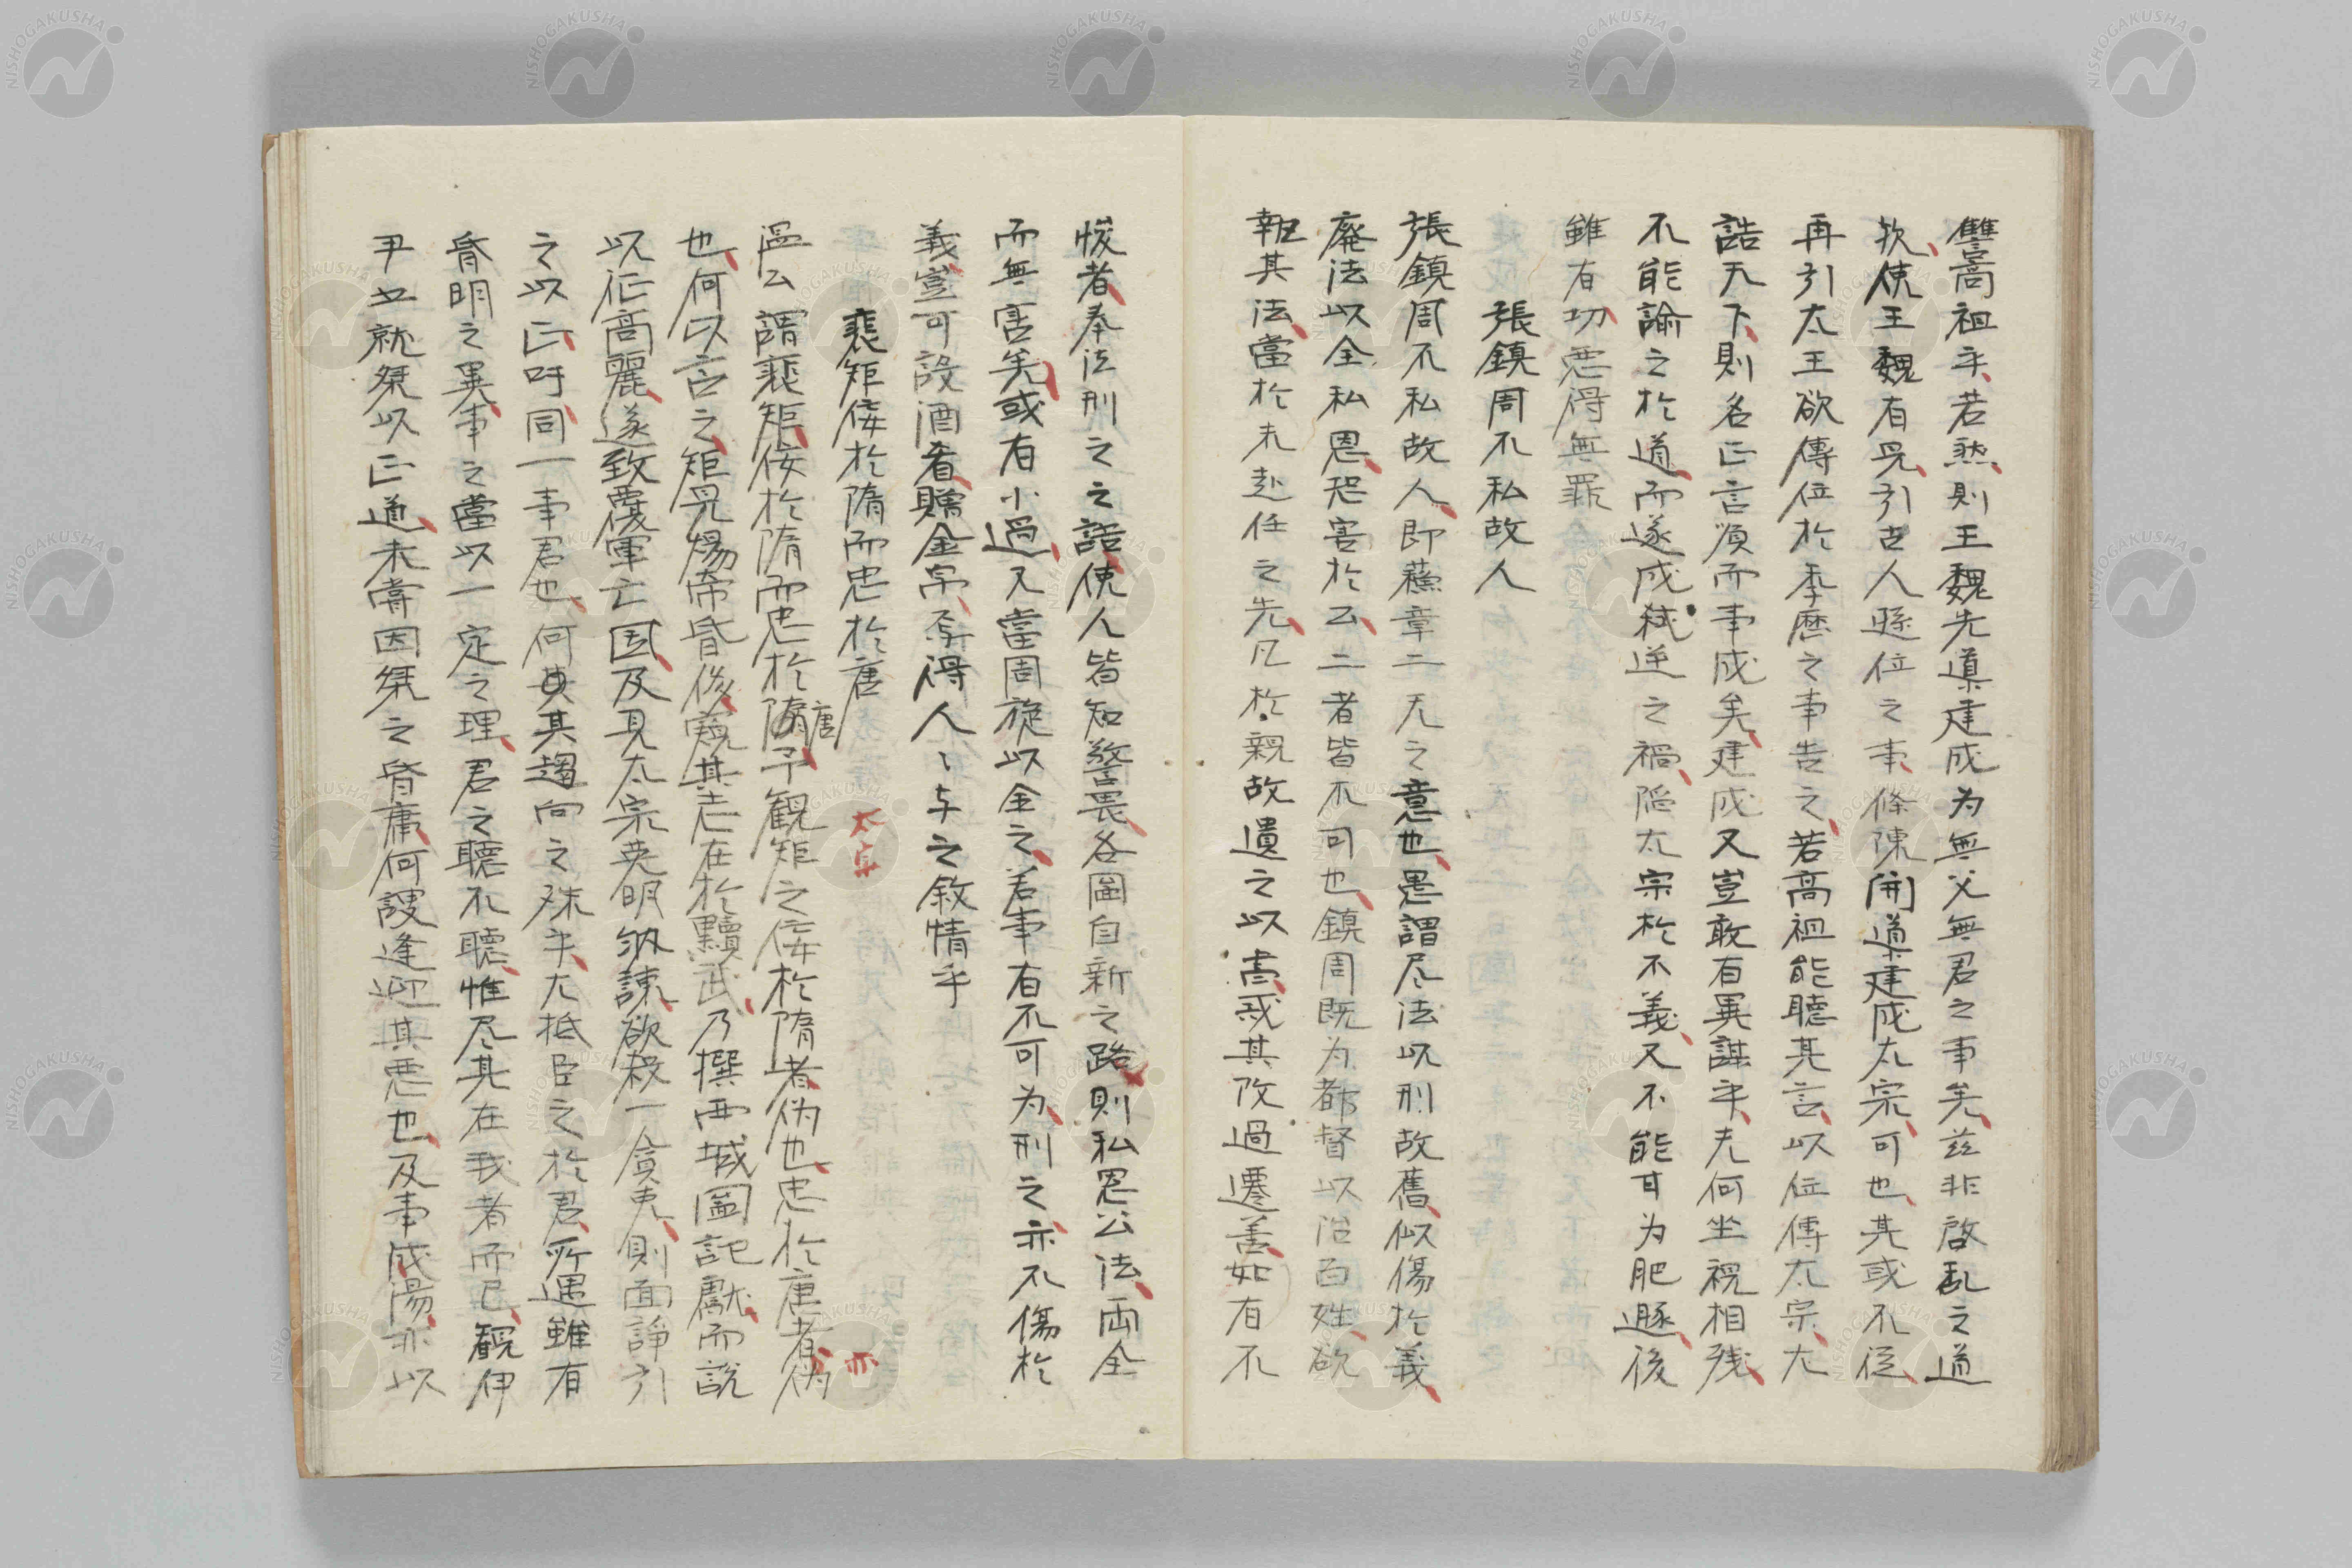 讐高祖乎若然則王魏先導建成为無父無君之事矣茲非啓乱之道
欤使王魏有見引古人遜位之事條陳開導建成太宗可也其或不從
再引太王欲傳位於季歷之事告之若高祖能聴其言以位傳太宗大
誥天下則名正言順而事成矣建成又豈敢有異謀乎夫何坐視相残
不能諭之於道而遂成弑逆之禍陥太宗於不義又不能甘为肥遯後
雖有功悪得無罪
張鎮周不私故人
張鎮周不私故人即蘓章二天之意也愚謂尽法以刑故舊似傷於義
廃法以全私恩恐害於公二者皆不可也鎮周既为都督以治百姓欲
執其法當於未赴任之先凡於親故遺之以書或其改過遷善如有不
悛者奉法刑之之語使人皆知警畏各圖自新之路則私恩公法両全
而無害矣或有小過又當周旋以全之若事有不可为刑之亦不傷於
義豈可設酒肴贈金帛求得人〻与之敘情乎
裴矩佞於隋而忠於唐
温公謂裴矩佞於隋而忠於隋唐予観矩之佞於隋者偽也忠於唐者偽
太真
亦
也何以言之矩見煬帝昏侈窺其志在於黷武乃撰西域圖記獻而説
以征高麗遂致覆軍亡国及見太宗英明納諌欲殺一貪吏則面諍引
之以正吁同一事君也何其其趨向之殊乎大抵臣之於君所遇雖有
昏明之異事之當以一定之理君之聴不聴惟尽其在我者而已観伊
尹五就桀以正道未嘗因桀之昏庸何謖逢迎其悪也及事成湯亦以